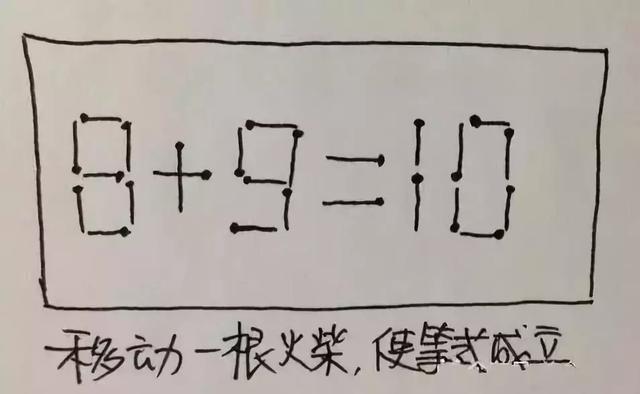 8+9=10
移动一根火柴,使等式成立